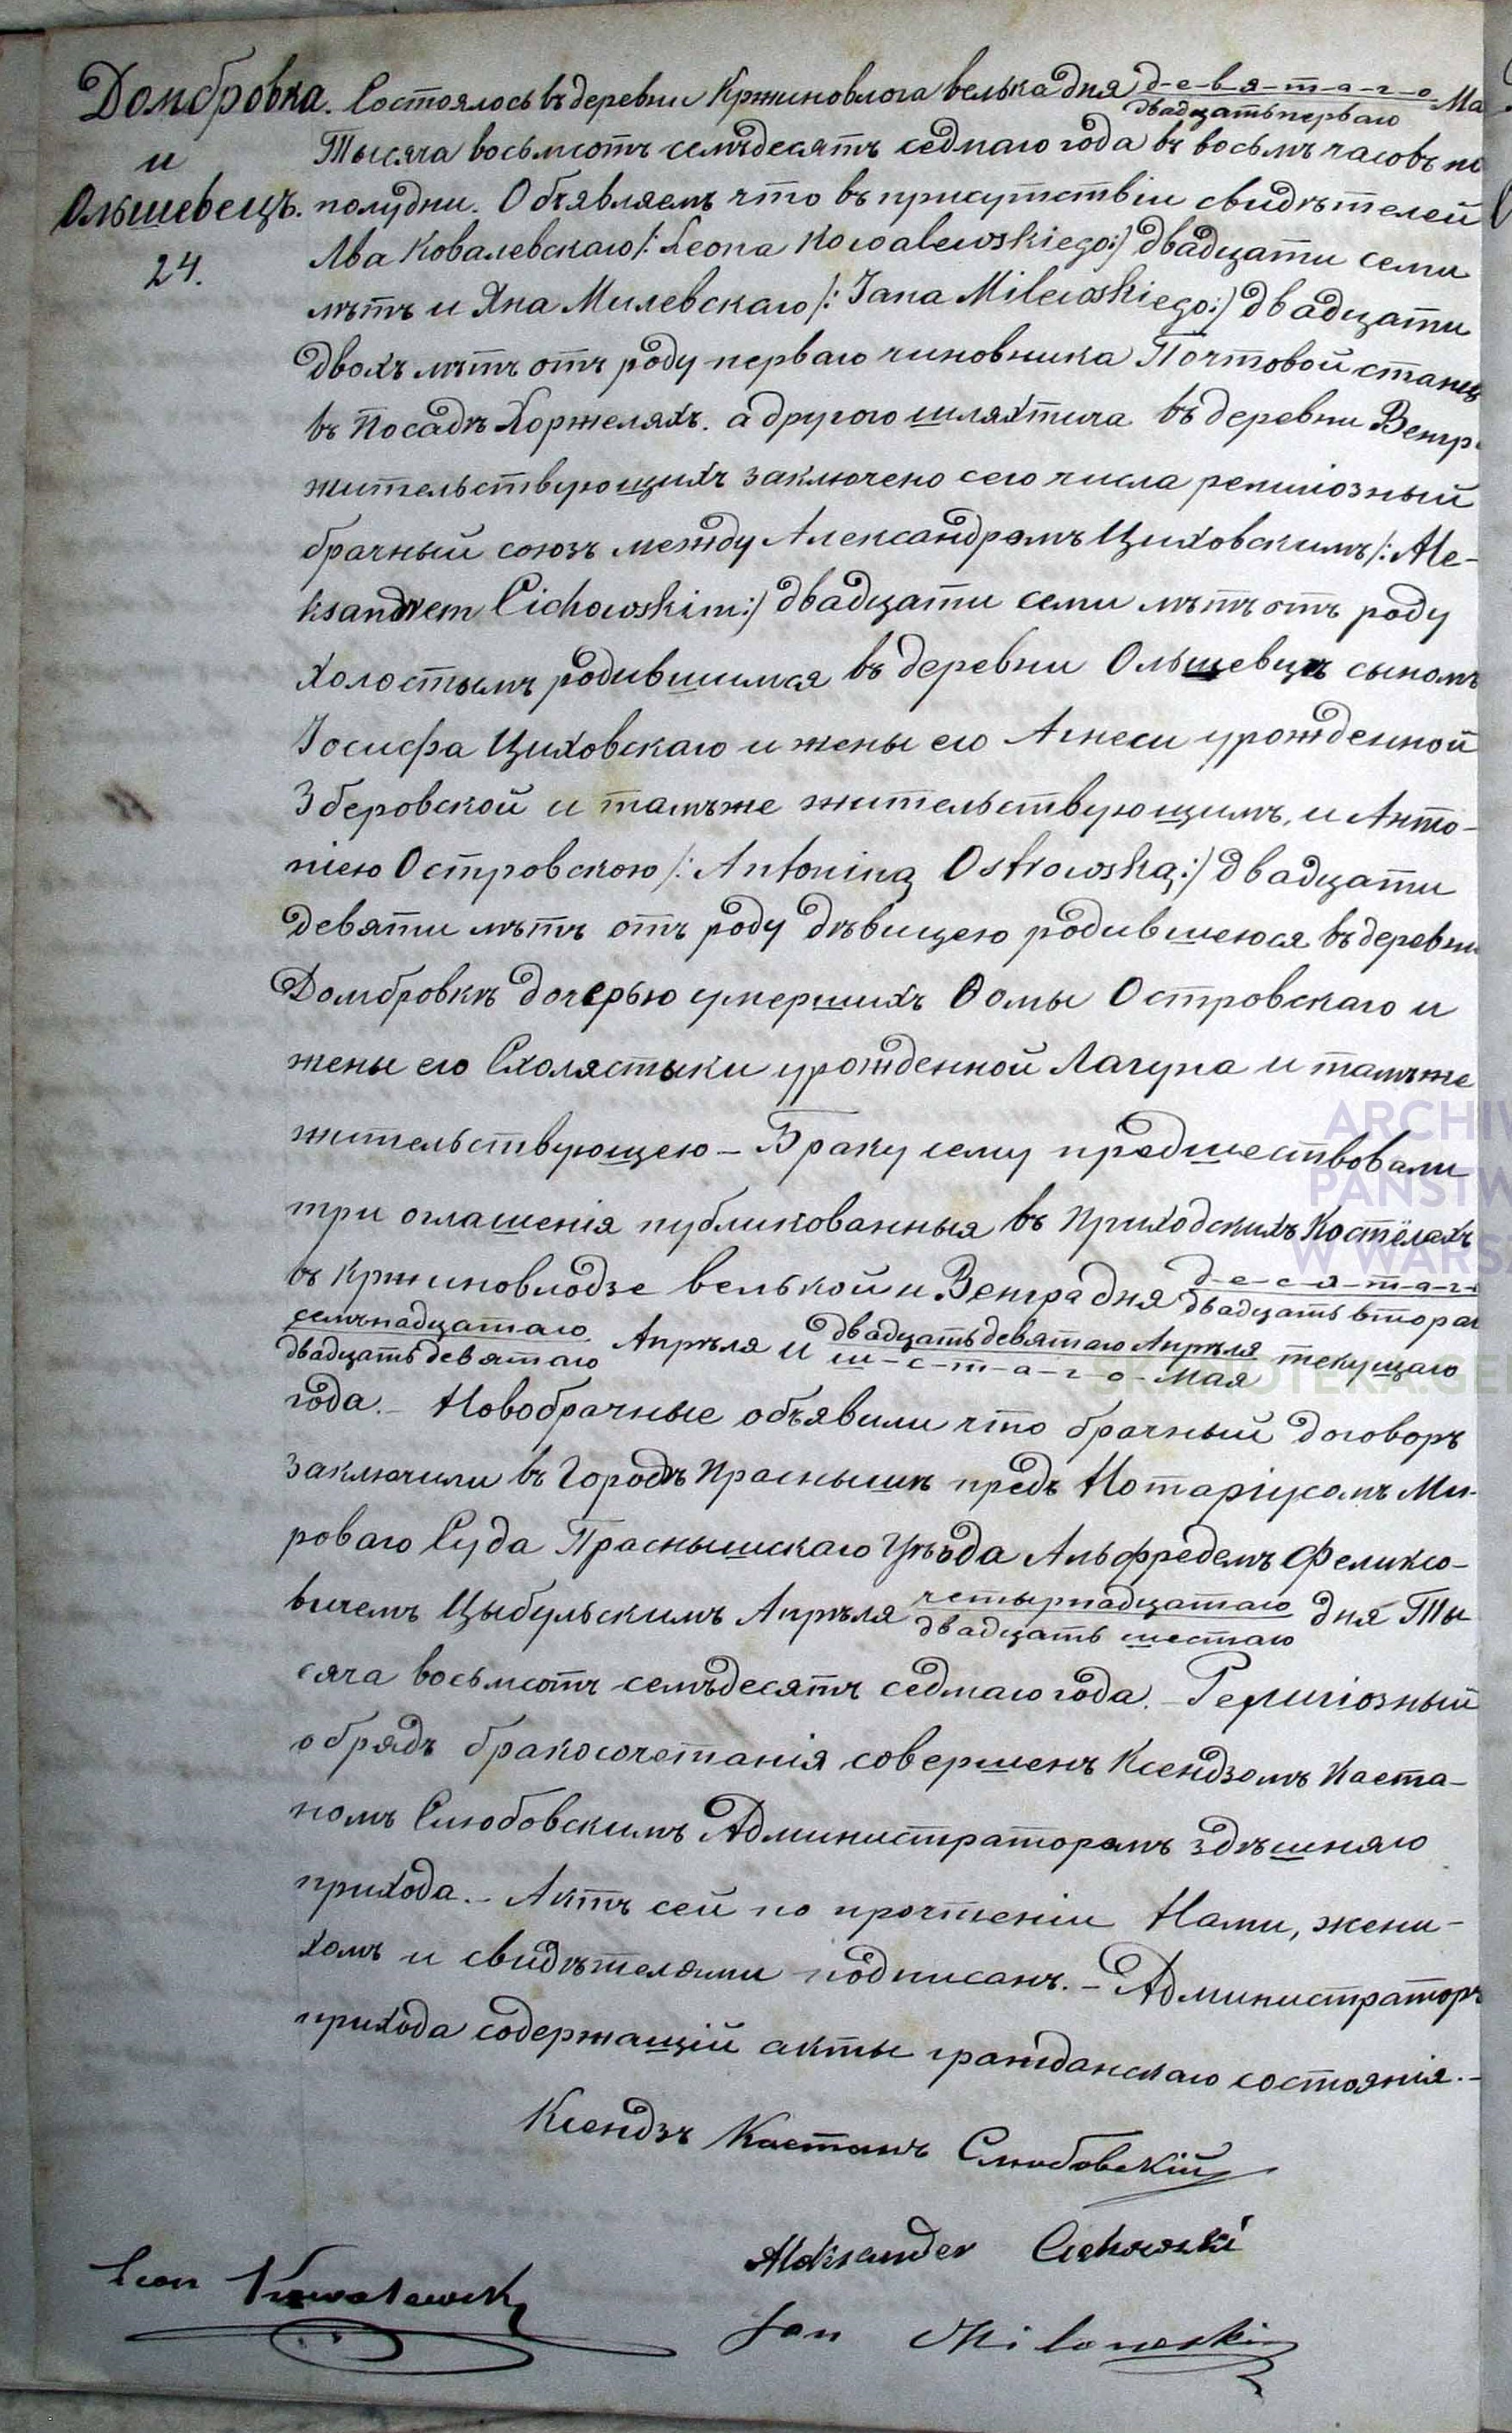 Домбровка. Состоялось въ деревни Кржиновлога велька дня девятаго Ма
двадцать перваго
и Тысяча восьмсотъ семьдесятъ седмаго года въ восьмъ часовъ по
Ольшевецъ. полудни. Объявляемъ что въ присутствіи свидѣтелей
24. Лва Ковалевскаго /: Leona Kowalewskiego :/ двадцати семи
лѣтъ и Яна Милевскаго /: Jana Milewskiego :/ двадцати
двохъ лѣтъ отъ роду перваго чиновника Почтовой станц
въ Посадѣ Хоржеляхъ. а другого шляхтича въ деревни Венгр
жительствующихъ заключено сего числа религіозный
брачный союзъ между Александромъ Циховскимъ /: Ale-
ksandrem Cichowskim :/ двадцати семи лѣтъ отъ роду
холостымъ родившимся въ деревни Ольшевцѣ сыномъ
Іосифа Циховскаго и жены его Агнеси урожденной
Зберовской и тамъже жительствующимъ, и Анто-
ніею Островскою /: Antoniną Ostrowską :/ двадцати
девяти лѣтъ отъ роду дѣвицею родившеюся въ деревни
Домбровкѣ дочерью умершихъ Ѳомы Островскаго и
жены его Схолястыки урожденной Лагуна и тамъже
жительствующею – Браку сему предшествовали
три оглашенія публикованныя въ Приходскихъ Костёлахъ
въ Кржиновлодзе велькой и Венгра дня десятаг
двадцать втораг
семьнадцатаго Апрѣля и двадцать девятаго Апрѣля текущаго
двадцать девятаго шстаго Мая
года. – Новобрачные объявили что брачный договоръ
заключили въ Городѣ Праснышѣ предъ Нотаріусомъ Ми-
роваго Суда Праснышскаго Уѣзда Альфредемъ Феликсо-
вичемъ Цыбульскимъ Апрѣля четырнадцатаго дня Ты
двадцать шестаго
сяча восьмсотъ семъдесятъ седмаго года. – Религіозный
обрядъ бракосочетанія совершенъ Ксендзомъ Каета-
номъ Слюбовскимъ Администраторомъ здѣшняго
прихода. – Актъ сей по прочтеніи Нами, жени-
хомъ и свидѣтелями подписанъ. – Администраторъ
прихода содержащій акты гражданскаго состоянія. –
Ксендзъ Каетанъ Слюбовскій
Aleksander Cichowski
Leon Kowalewski
Jan Milewski
ARCHIW
PAŃSTW
W WARSZ
SKANOTEKA.GE